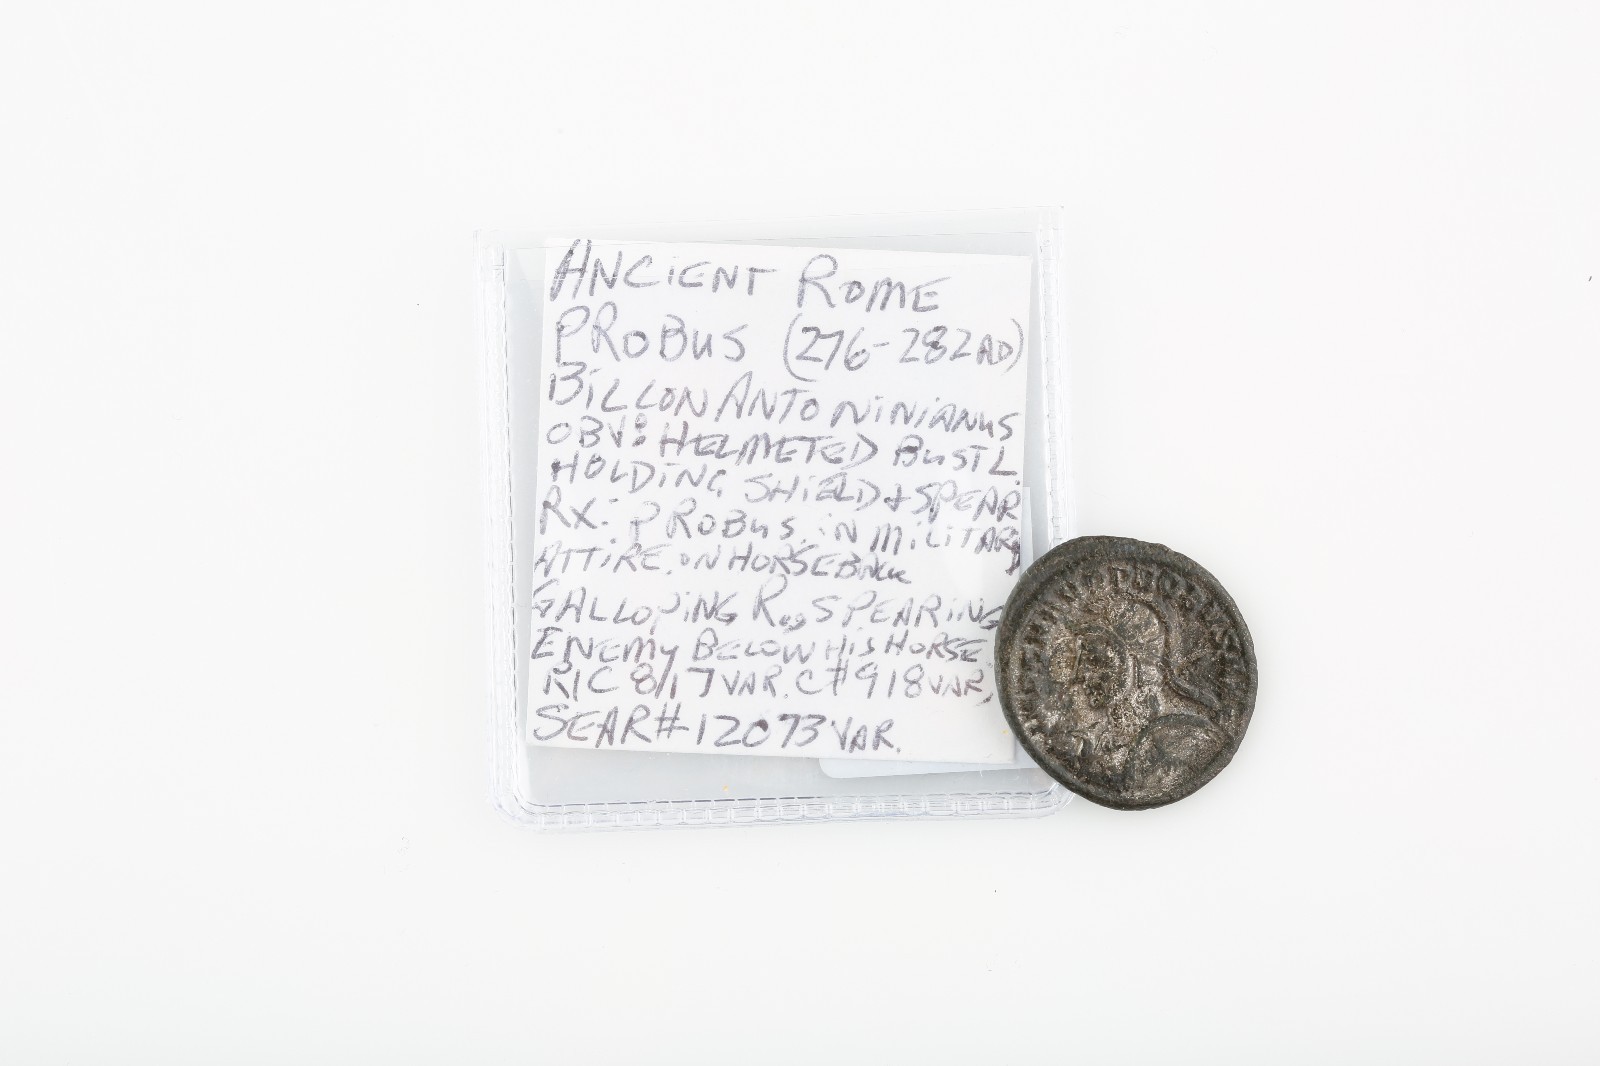 ANCIENT ROME
PROBUS (276-282 AD)
BILLON ANTONINIANUS
OBV: HELMETED BUST L.
HOLDING SHIELD & SPEAR
RX: PROBUS IN MILITARY
ATTIRE, ON HORSEBACK
GALLOPING R., SPEARING
ENEMY BELOW HIS HORSE
RIC 817 VAR. C#918 VAR,
SEAR# 12073 VAR.